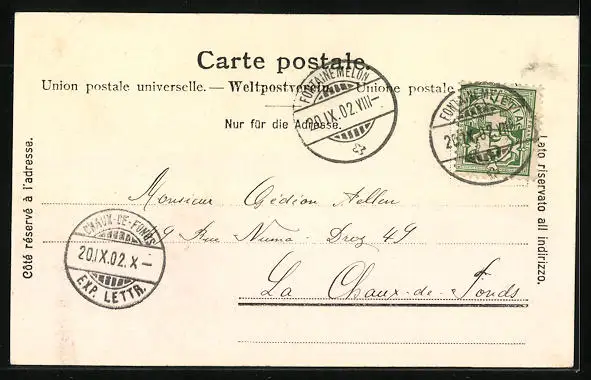 Carte postale.
Union postale universelle. — Weltpostverein. — Unione postale
Nur für die Adresse.
FONTAINEMELON
20.IX.02.VIII–
FONTAINEMELON
20.IX.02.VIII–
Côté réservé à l'adresse.
Lato riservato all'indirizzo.
Monsieur Gédéon
49 Rue Numa-Droz 49
La Chaux-de-Fonds
CHAUX-DE-FONDS
20.IX.02.X–
EXP. LETTR.